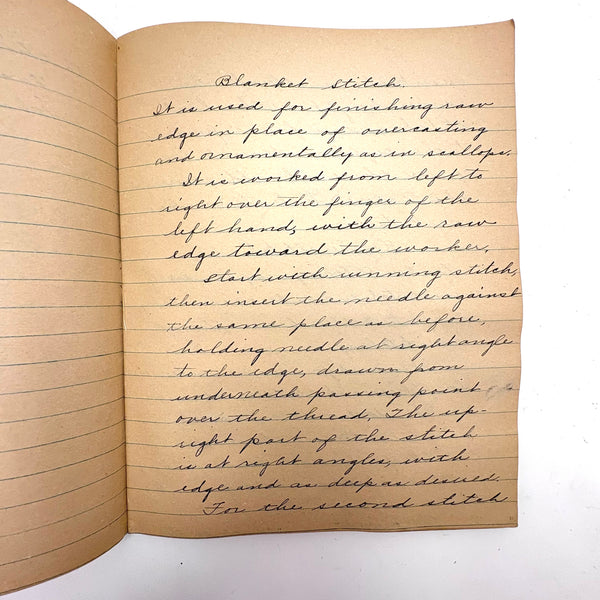 Blanket Stitch.
It is used for finishing raw
edge in place of overcasting
and ornamentally as in scallops.
It is worked from left to
right over the finger of the
left hand, with the raw
edge toward the worker.
Start with running stitch,
then insert the needle against
the same place as before,
holding needle at right angle
to the edge, drawn from
underneath passing point
over the thread. The up-
right part of the stitch
is at right angles, with
edge and as deep as desired.
For the second stitch